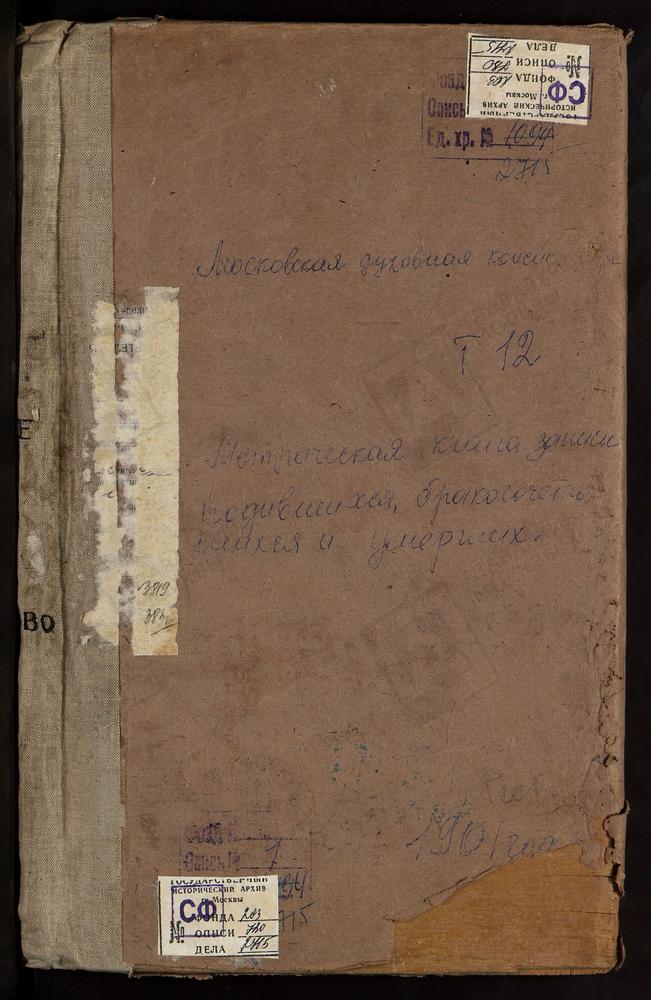 ГОСУДАРСТВЕННЫЙ
ИСТОРИЧЕСКИЙ АРХИВ
г. Москвы
СФ
№
ФОНДА 203
ОПИСИ 780
ДЕЛА 2715
Фонд
Опись
Ед. хр. № 1094
2715
Московская духовная
Т 12
Метрическая книга записи
родившихся, бракосочетав
шихся и умерших.
3819
383
ВО
1901 год
Фонд №
Опись № 7
ГОСУДАРСТВЕННЫЙ
ИСТОРИЧЕСКИЙ АРХИВ
г. Москвы
СФ
№
ФОНДА 203
ОПИСИ 780
ДЕЛА 2715